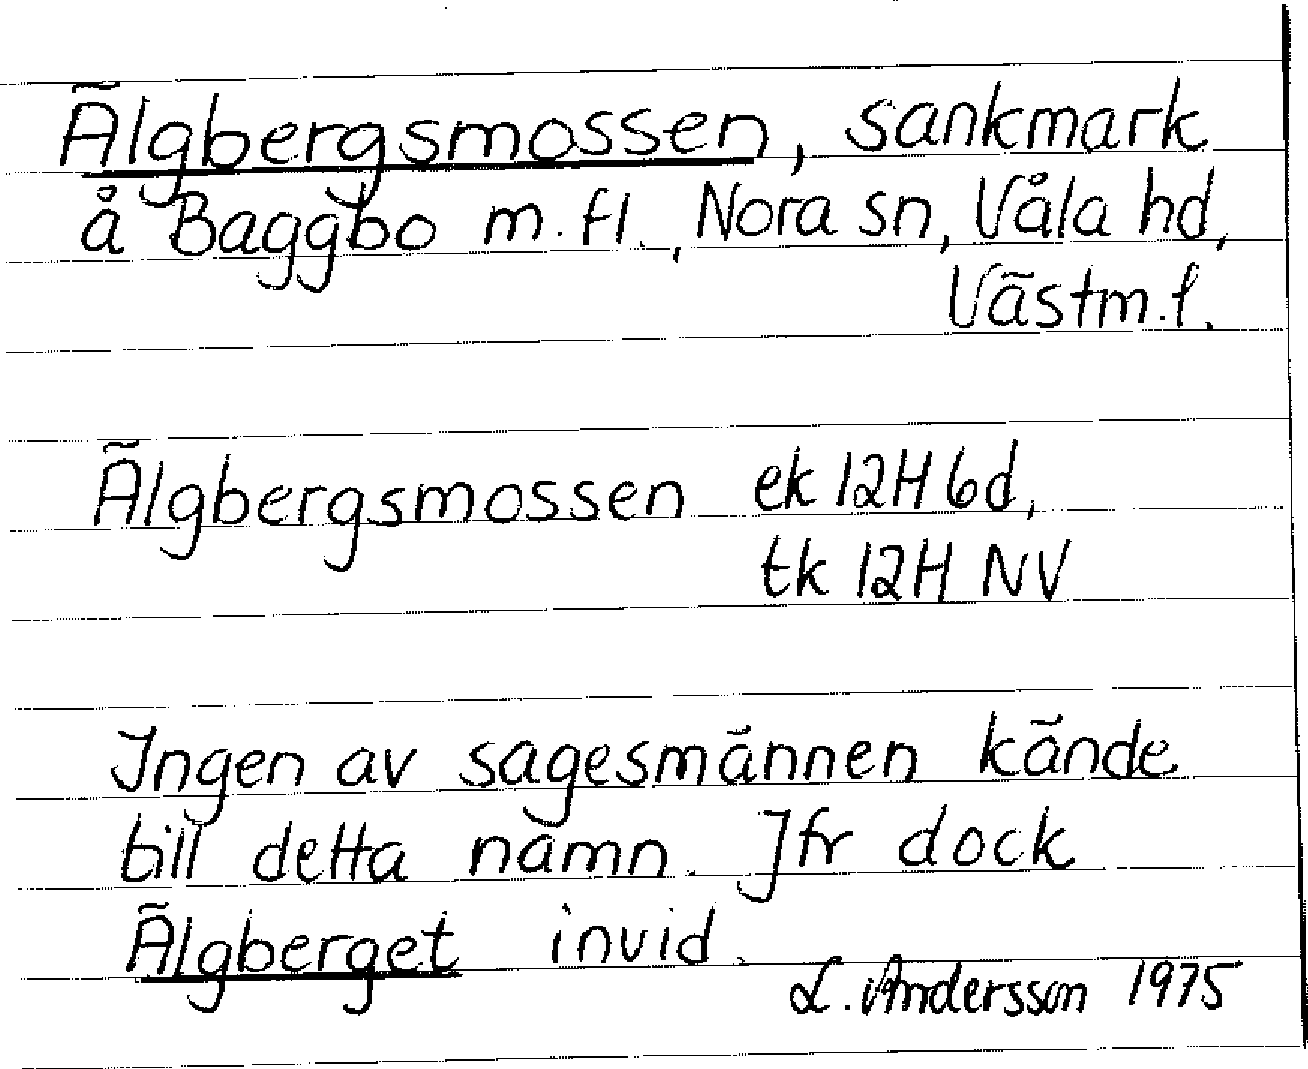 Älgbergsmossen, sankmark
å Baggbo m.fl., Nora sn, Våla hd,
Västm.l.
Älgbergsmossen ek 12H6d,
tk 12H NV
Ingen av sagesmännen kände
till detta namn. Jfr dock
Älgberget invid.
L. Andersson 1975